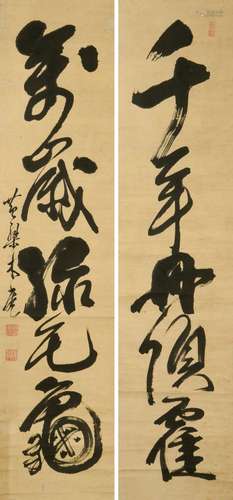 千年丹頂霍
萬歲緑毛龜
黄檗木菴